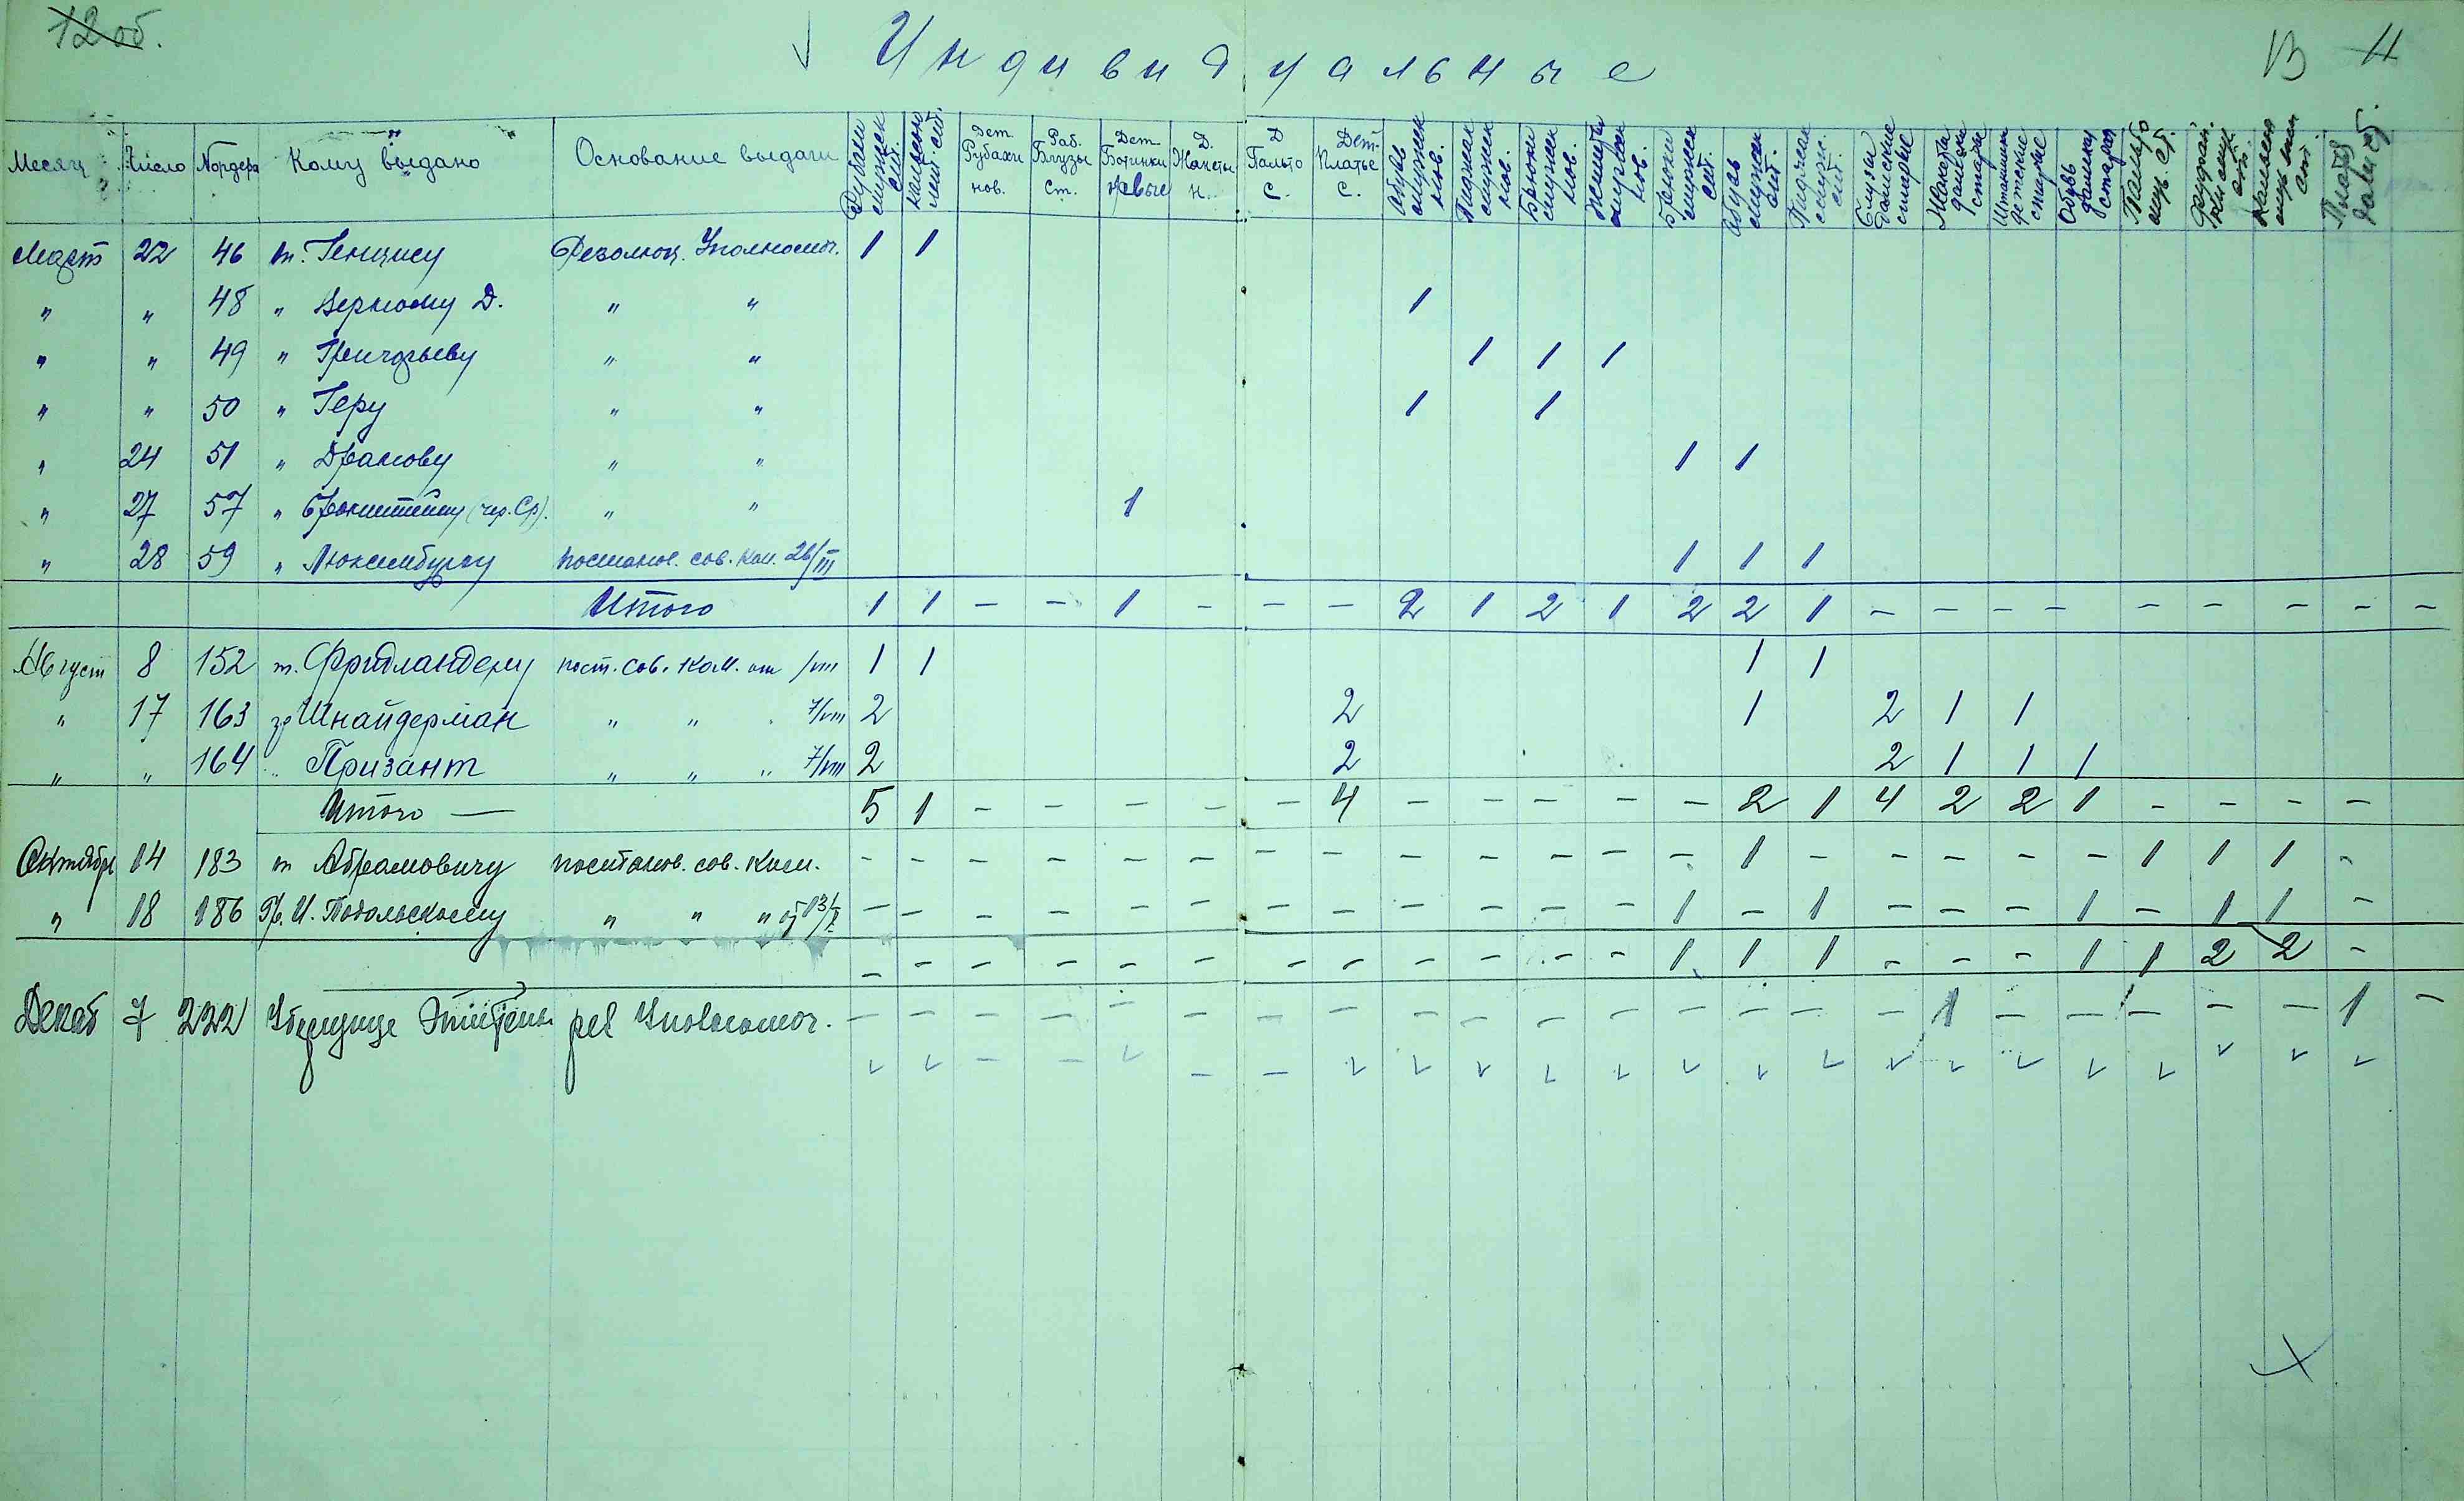 12 об.
Индивидуальные
13 11
Месяц Число № ордера Кому выдано Основание выдачи Рубахи мужск ст. Кальсоны ст. Дет. Рубахи нов. Раб. Блузы ст. Дет. Ботинки новые Д. Жакеты н. Д Пальто с. Дет. Платье с. Обувь мужск нов. Пиджак мужск нов. Брюки мужск нов. нов. Брюки мужск ст. Обувь мужск ст. Пиджак мужск. ст. Блузы дамские старые Жакеты дамски стары Штанишки детские старые Обувь дамск старая Пальто муж. ст. ст. Кальсоны ст. Платье дам ст.
Март 22 46 т. Генцису Резолюц. Уполномоч. 1 1
" " 48 " Верному Д. " " 1
" " 49 " Григорьеву " " 1 1 1
" " 50 " Геру " " 1 1
" 24 51 " Драмову " " 1 1
" 27 57 " Бронштейну (чер. Ср). " " 1
" 28 59 " Люксембургу постанов. сов. ком. 26/III 1 1 1
Итого 1 1 - - 1 - - - 2 1 2 1 2 2 1 - - - - - - - - -
Август 8 152 т. Фридландеру пост. сов. ком. от /VIII 1 1 1 1
" 17 163 гр Шнайдерман " " " 7/VIII 2 2 1 2 1 1
" " 164 " Призант " " " 7/VIII 2 2 2 1 1 1
Итого — 5 1 - - - - - 4 - - - - - 2 1 4 2 2 1 - - - -
Октябрь 14 183 т Абрамовичу постанов. сов. ком. - - - - - - - - - - - - - 1 - - - - - 1 1 1 -
" 18 186 Гр. И. Подольскому " " " от 13/X - - - - - - - - - - - - 1 - 1 - - - 1 - 1 1 -
- - - - - - - - - - - - 1 1 1 - - - 1 1 2 2 -
Декаб 7 222 рез Уполномоч. - - - - - - - - - - - - - - - - 1 - - - - - 1 -